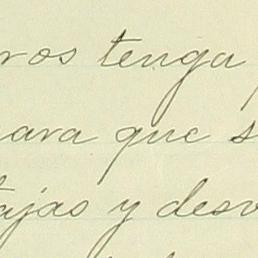 ros tenga
para que s
tajas y desv